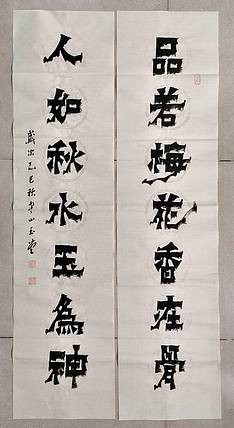 品若梅花香在骨
人如秋水玉為神
歲次乙巳秋